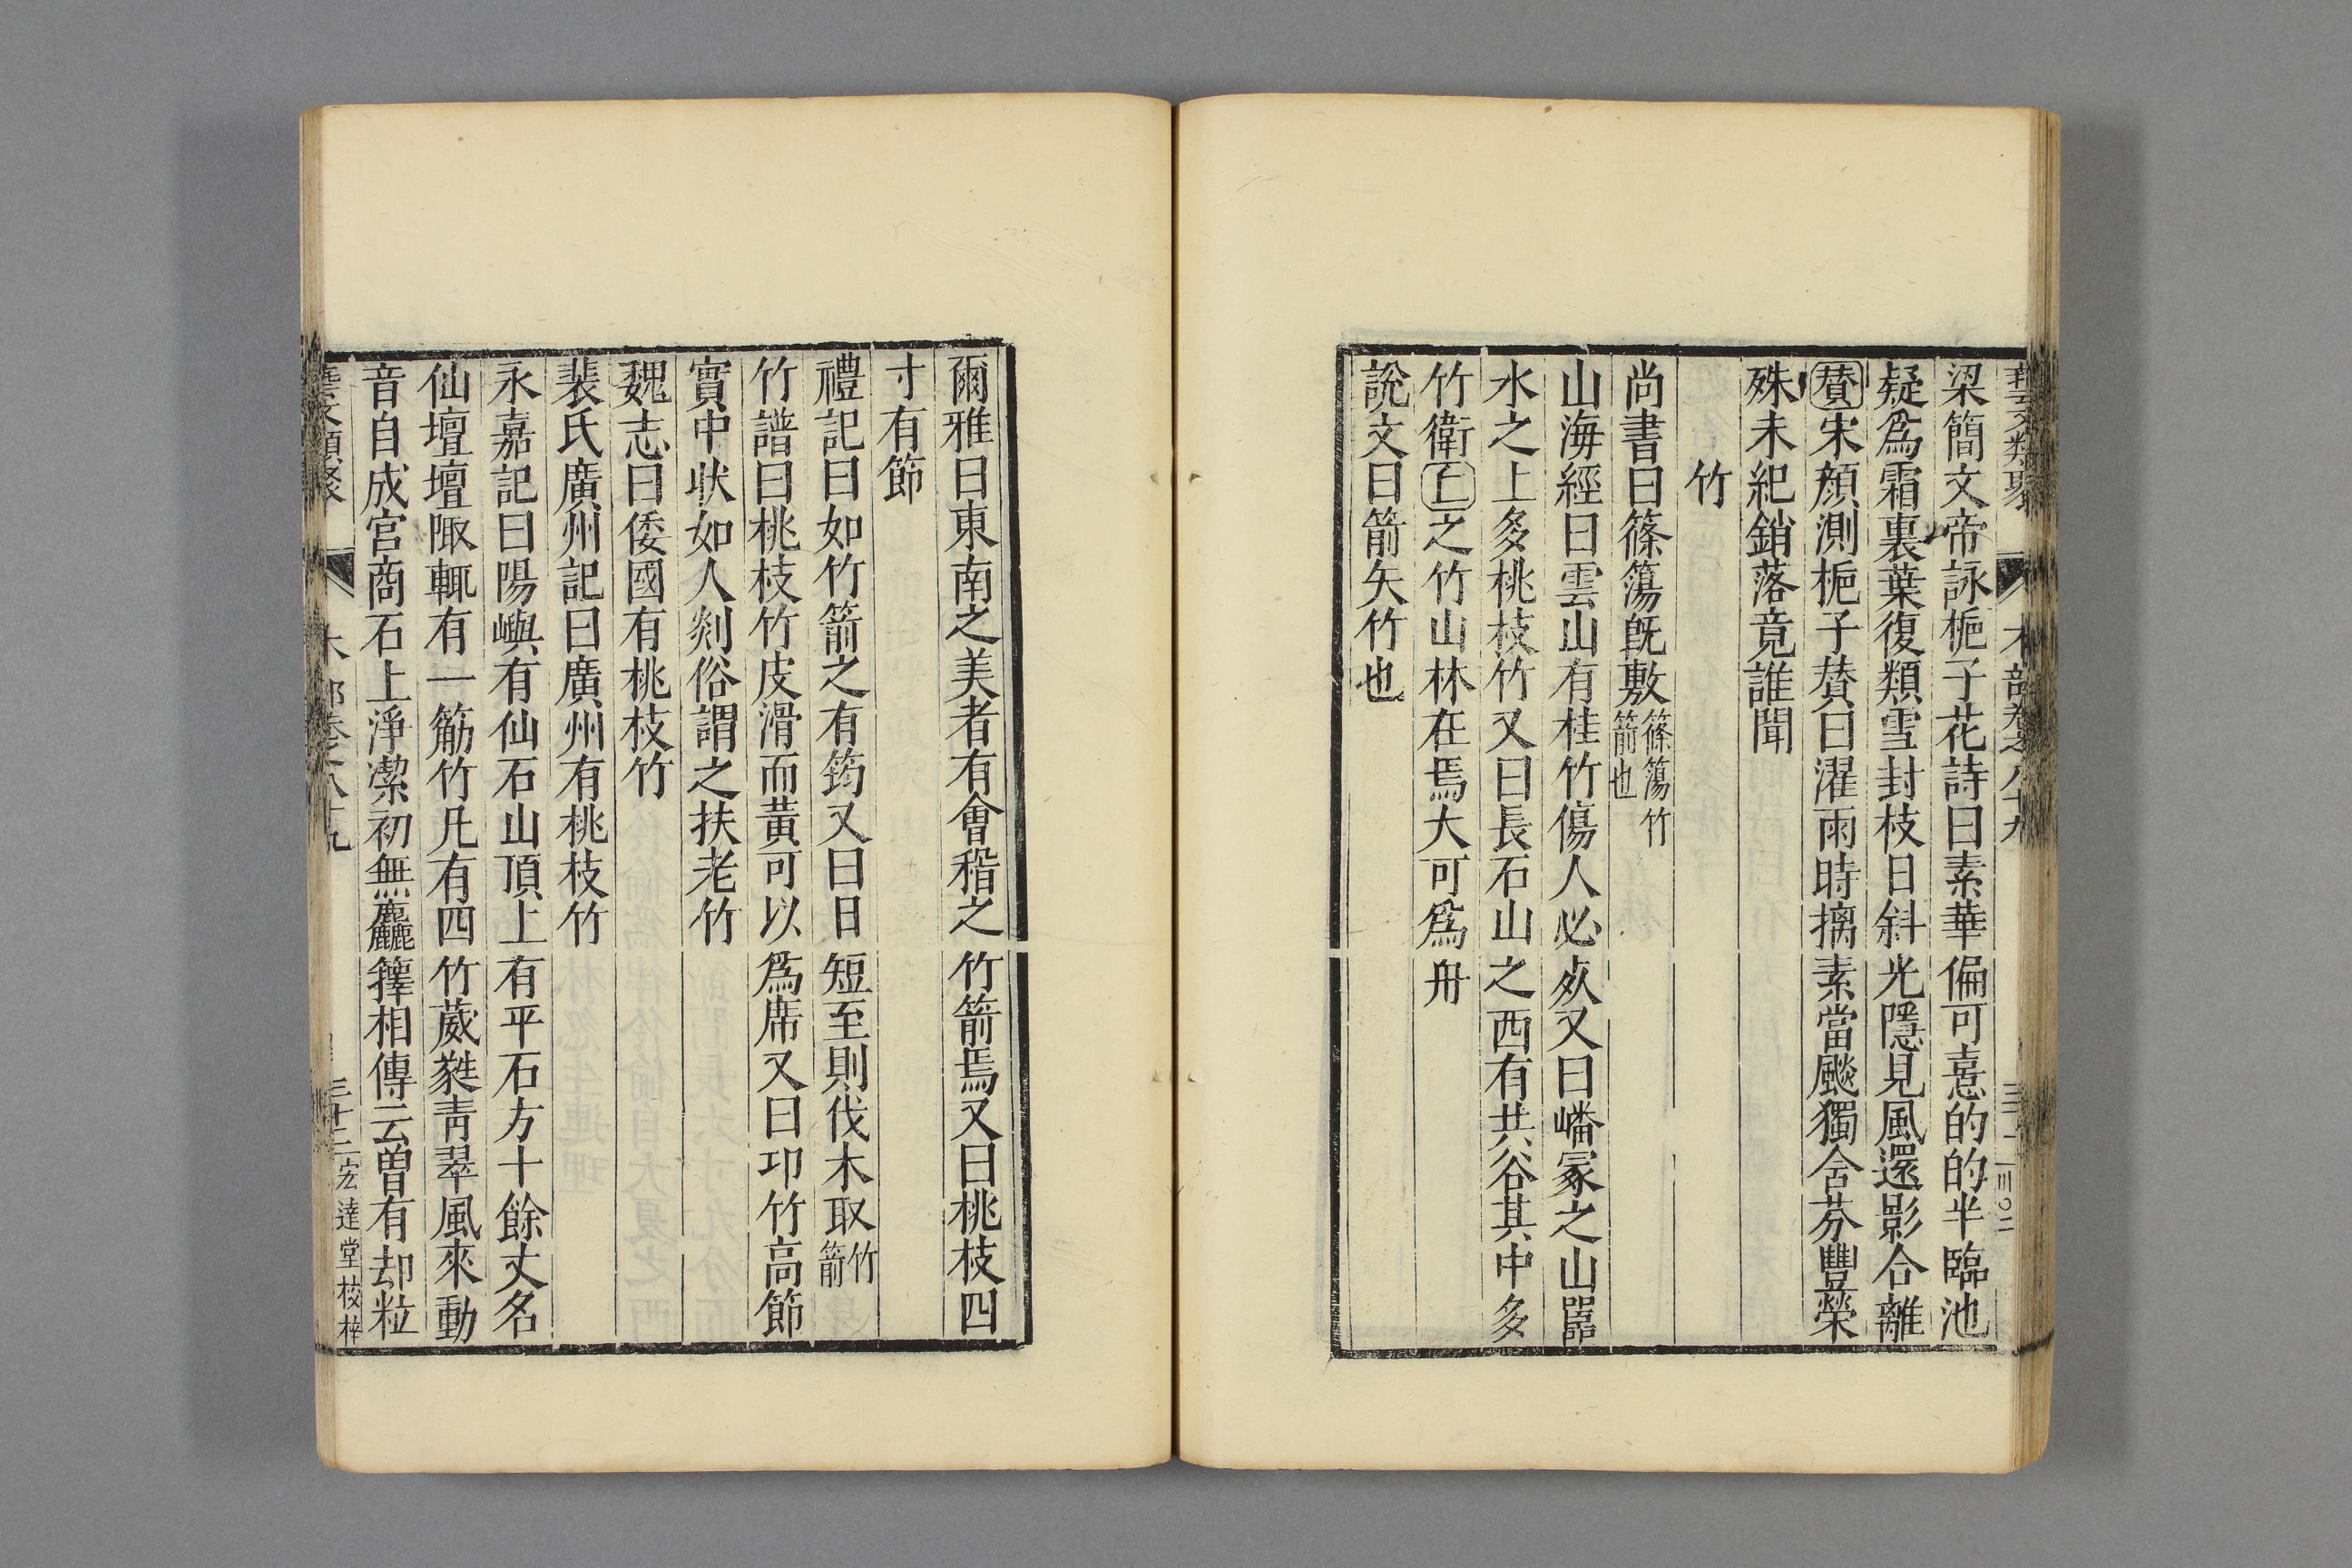 梁簡文帝詠梔子花詩曰素華偏可憙的的半臨池
疑爲霜裏葉復類雪封枝日斜光隱見風還影合離
賛宋顔測梔子賛曰濯雨時摛素當飈獨含芬豐榮
殊未紀銷落竟誰聞
竹
尚書曰篠簜旣敷篠簜竹箭也
山海經曰雲山有桂竹傷人必死又曰嶓冢之山囂
水之上多桃枝竹又曰長石山之西有共谷其中多
竹衛丘之竹山林在焉大可爲舟
說文曰箭矢竹也
爾雅曰東南之美者有會稽之竹箭焉又曰桃枝四
寸有節
禮記曰如竹箭之有筠又曰日短至則伐木取竹箭
竹譜曰桃枝竹皮滑而黃可以爲席又曰卭竹高節
實中狀如人剡俗謂之扶老竹
魏志曰倭國有桃枝竹
裴氏廣州記曰廣州有桃枝竹
永嘉記曰陽嶼有仙石山頂上有平石方十餘丈名
仙壇壇陬輒有一觔竹凡有四竹葳蕤靑翠風來動
音自成宮商石上淨潔初無麤籜相傳云曾有却粒
三十二宏達堂校梓